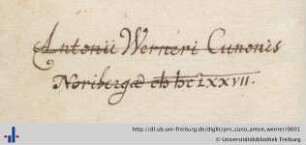 Antonii Werneri Cunonis
Noribergæ cIↄ Iↄc LXXVII.
http://dl.ub.uni-freiburg.de/diglit/prov_cuno_anton_werner/0001
© Universitätsbibliothek Freiburg